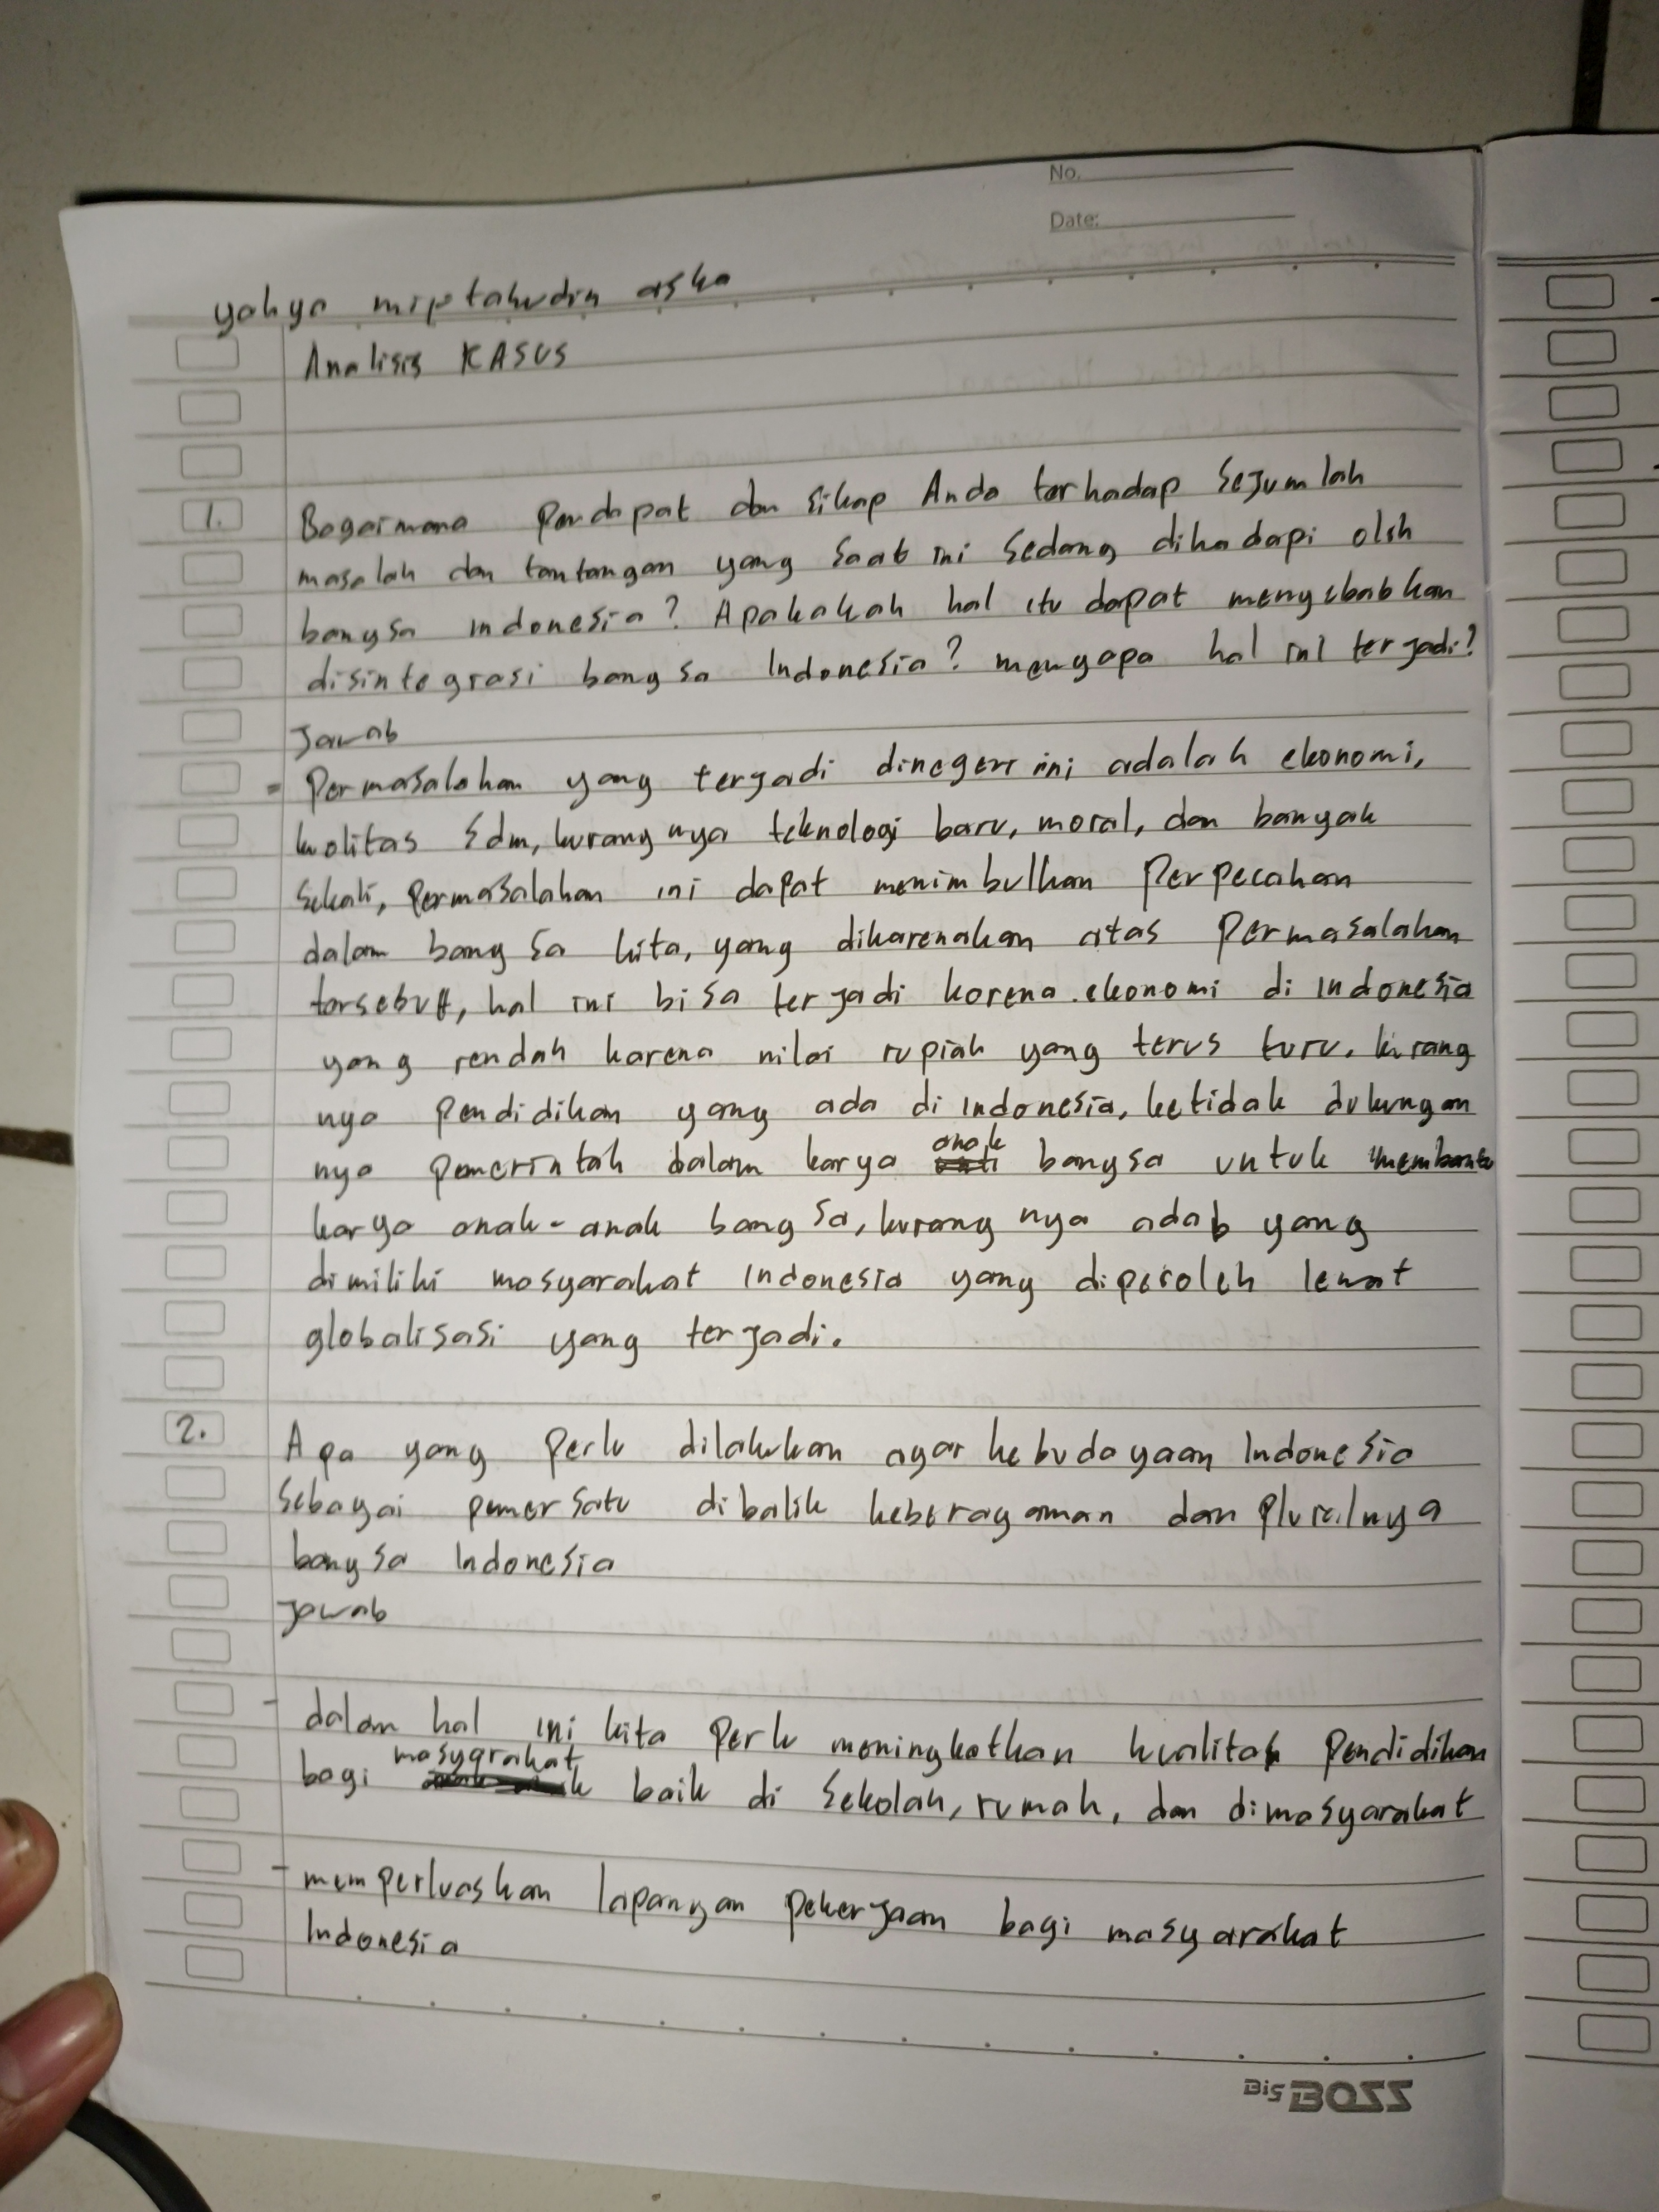 No.
Date:
yahya miptahudin aska
Analisis KASUS
1. Bagaimana Pendapat dan Sikap Anda terhadap Sejumlah
masalah dan tantangan yang saat ini Sedang dihadapi oleh
bangsa indonesia? Apakakah hal itu dapat menyebabkan
disintegrasi bangsa Indonesia? mengapa hal ini terjadi?
Jawab
- Permasalahan yang terjadi dinegeri ini adalah ekonomi,
kualitas Sdm, kurangnya teknologi baru, moral, dan banyak
Sekali, Permasalahan ini dapat menimbulkan Perpecahan
dalam bangsa kita, yang dikarenakan atas Permasalahan
tersebut, hal ini bisa terjadi karena ekonomi di indonesia
yang rendah karena nilai rupiah yang terus turu. kurang
nya Pendidikan yang ada di indonesia, ketidak dukungan
nya Pemerintah dalam karya anak bangsa untuk membantu
karya anak-anak bangsa, kurang nya adab yang
dimiliki masyarakat indonesia yang diperoleh lewat
globalisasi yang terjadi.
2. Apa yang Perlu dilakukan agar kebudayaan Indonesia
Sebagai pemersatu dibalik keberagaman dan Pluralnya
bangsa Indonesia
Jawab
- dalam hal ini kita Perlu meningkatkan kualitas Pendidikan
bagi masyarakat baik di Sekolah, rumah, dan dimasyarakat
- memperluaskan lapangan pekerjaan bagi masyarakat
Indonesia
Big BOSS